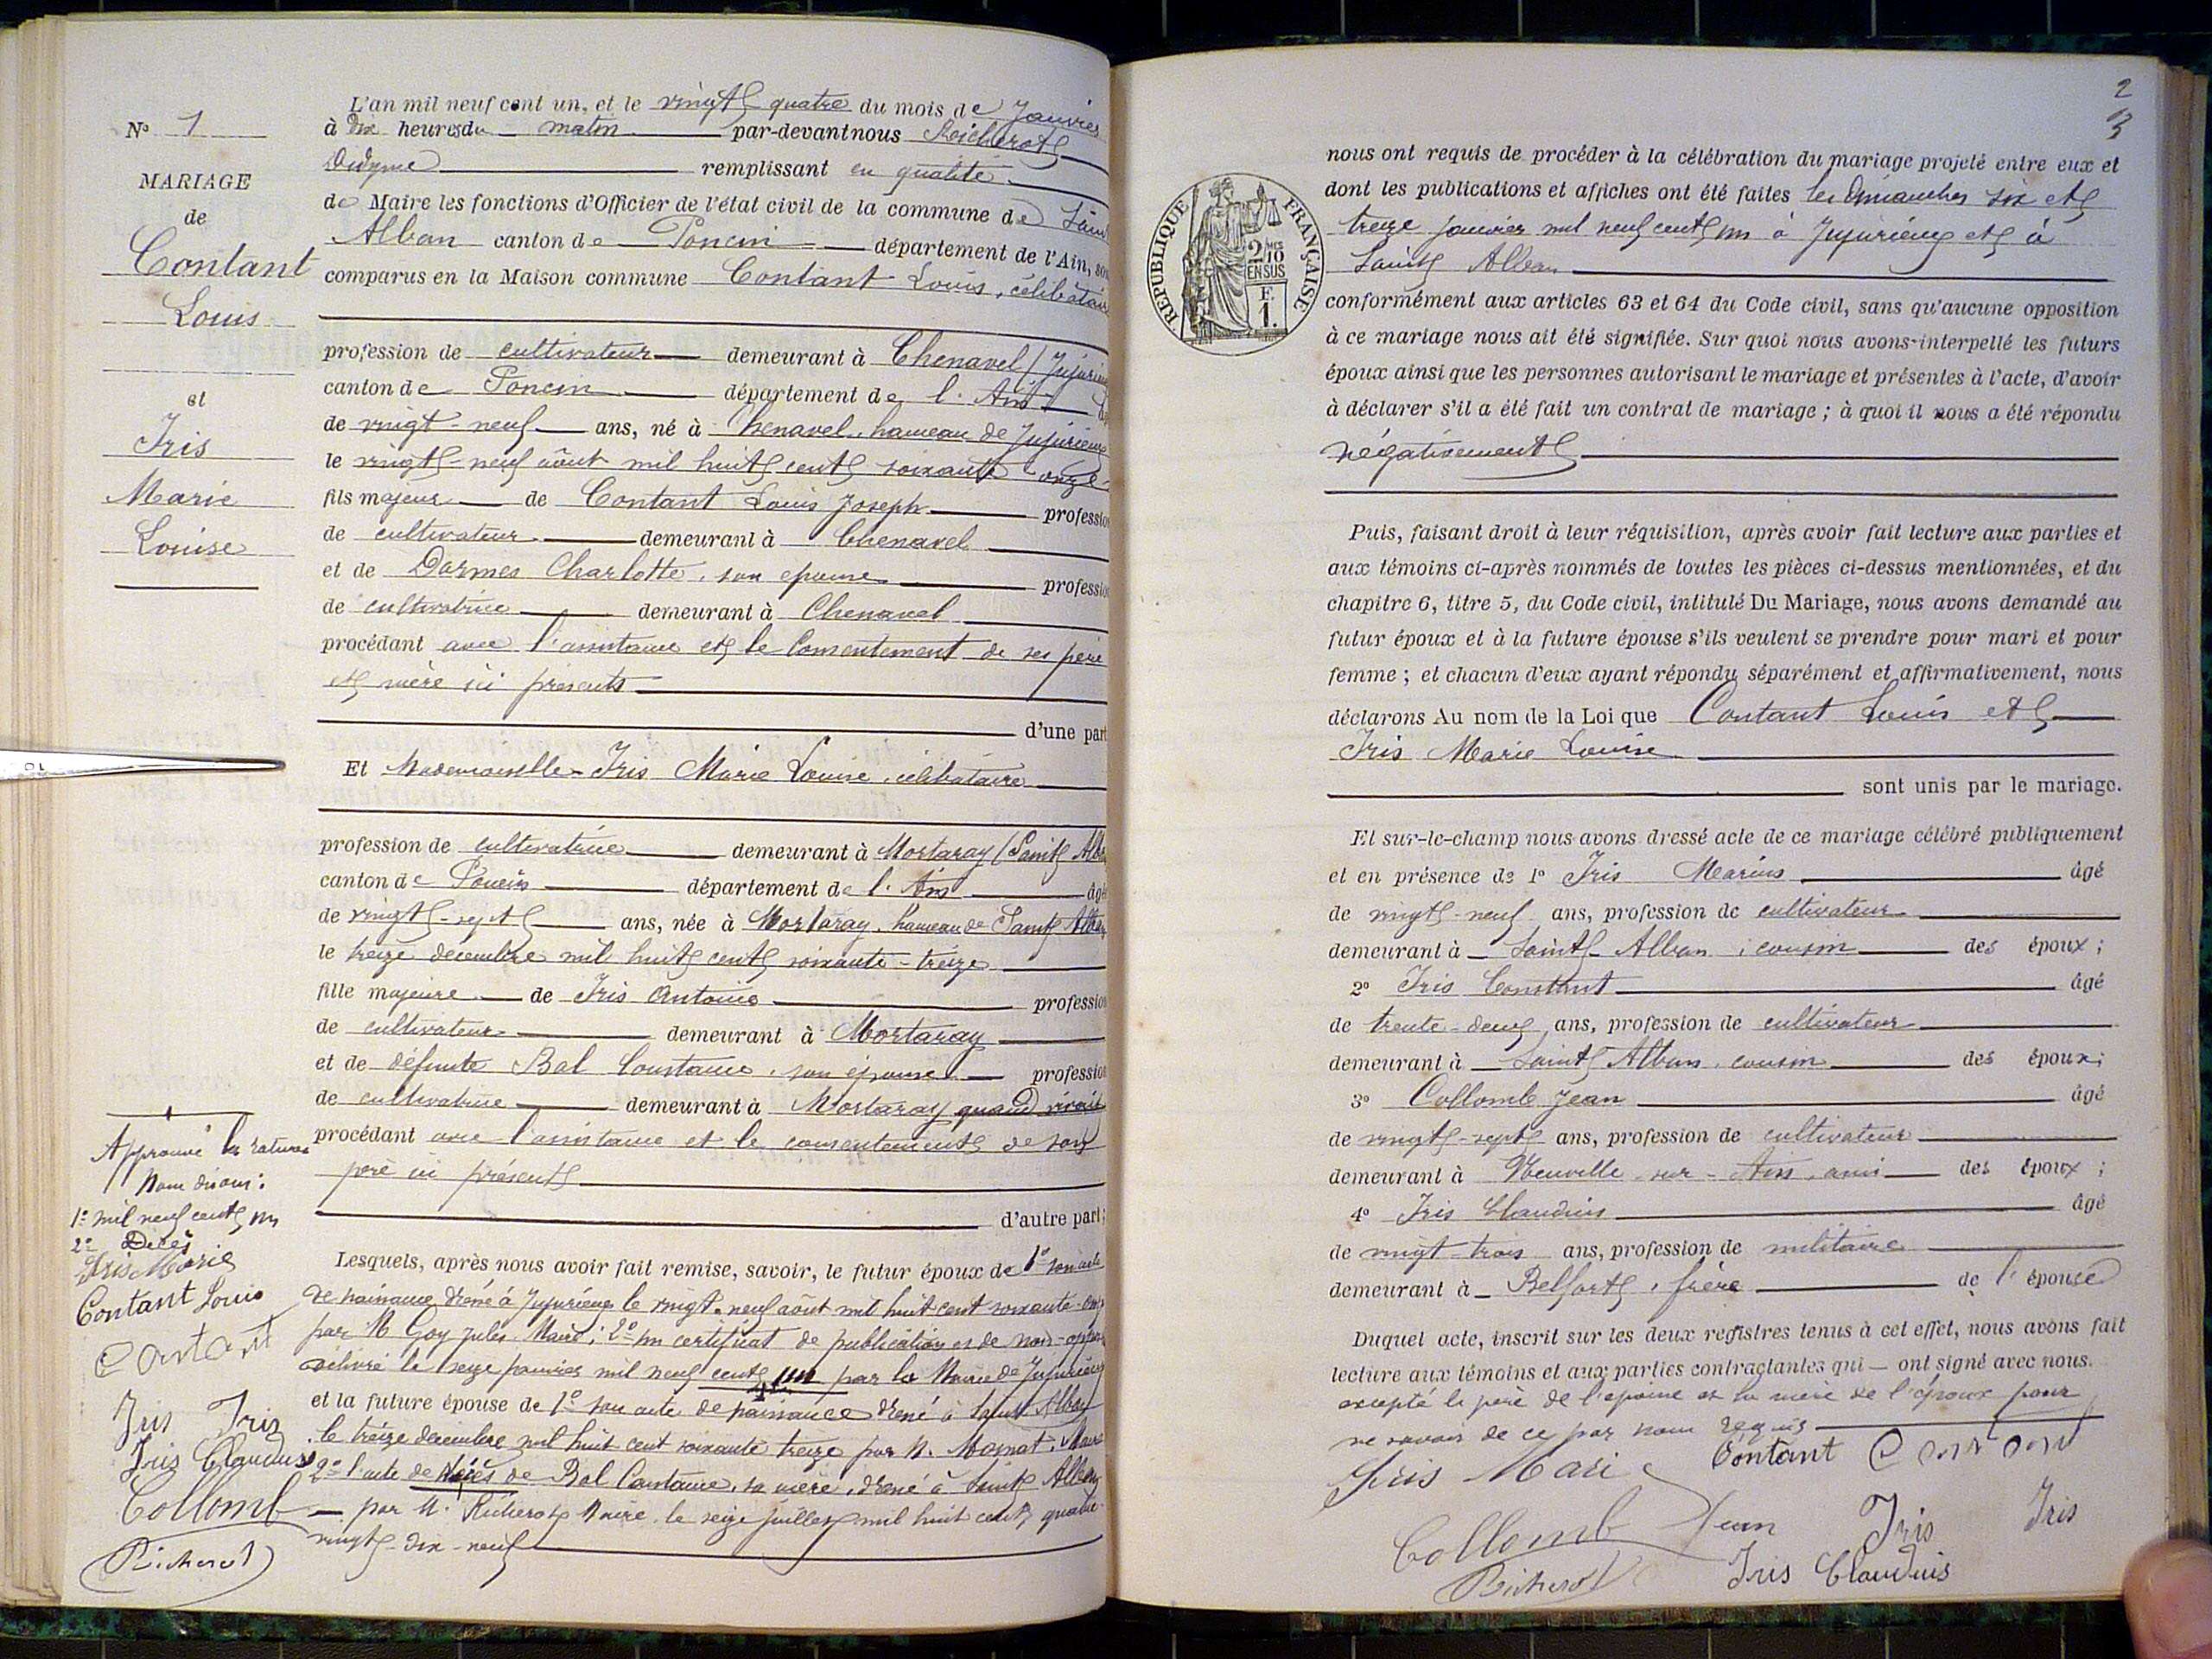 N° 1
MARIAGE
de
Contant
Louis
et
Iris
Marie
Louise
Approuvé les ratures
Nous disons :
1° mil neuf cent un
2° Décès
Iris Marie
Contant Louis
Contant
Iris Iris
Iris Claudius
Collomb
Richerot
L'an mil neuf cent un, et le vingt quatre du mois de Janvier
à dix heures du matin par-devant nous Richerot
Didyme remplissant en qualité
de Maire les fonctions d'Officier de l'état civil de la commune de Saint
Alban canton de Poncin département de l'Ain, son
comparus en la Maison commune Contant Louis, célibataire
profession de cultivateur demeurant à Chenavel (Jujurieux
canton de Poncin département de l'Ain
de vingt-neuf ans, né à Chenavel, hameau de Jujurieux
le vingt-neuf août mil huit cent soixante-onze
fils majeur de Contant Louis Joseph profession
de cultivateur demeurant à Chenavel
et de Dormes Charlotte, son épouse profession
de cultivatrice demeurant à Chenavel
procédant avec l'assistance et le consentement de ses père
et mère ici présents
d'une part
Et Mademoiselle Iris Marie Louise, célibataire
profession de cultivatrice demeurant à Mortaray (Saint Alban
canton de Poncin département de l'Ain âgé
de vingt-sept ans, née à Mortaray, hameau de Saint Alban
le treize décembre mil huit cent soixante-treize
fille majeure de Iris Antoine profession
de cultivateur demeurant à Mortaray
et de défunte Bal Constance, son épouse profession
de cultivatrice demeurant à Mortaray quand vivait
procédant avec l'assistance et le consentement de son
père ici présent
d'autre part ;
Lesquels, après nous avoir fait remise, savoir, le futur époux de 1° son acte
de naissance dressé à Jujurieux le vingt-neuf août mil huit cent soixante-onze
par M Goy Jules Maire ; 2° un certificat de publication et de non-oppos
délivré le seize janvier mil neuf cent un par la Mairie de Jujurieux
et la future épouse de 1° son acte de naissance dressé à Saint Alban
le treize décembre mil huit cent soixante treize par M. Mornat, Maire
2° l'acte de décès de Bal Constance, sa mère, dressé à Saint Alban
par M. Richerot Maire le seize juillet mil huit cent quatre
vingt-dix-neuf
2
3
REPUBLIQUE FRANÇAISE
2 MES
10
EN SUS
F.
1.
nous ont requis de procéder à la célébration du mariage projeté entre eux et
dont les publications et affiches ont été faites les dimanches six et
treize janvier mil neuf cent un à Jujurieux et à
Saint Alban
conformément aux articles 63 et 64 du Code civil, sans qu'aucune opposition
à ce mariage nous ait été signifiée. Sur quoi nous avons interpellé les futurs
époux ainsi que les personnes autorisant le mariage et présentes à l'acte, d'avoir
à déclarer s'il a été fait un contrat de mariage ; à quoi il nous a été répondu
négativement
Puis, faisant droit à leur réquisition, après avoir fait lecture aux parties et
aux témoins ci-après nommés de toutes les pièces ci-dessus mentionnées, et du
chapitre 6, titre 5, du Code civil, intitulé Du Mariage, nous avons demandé au
futur époux et à la future épouse s'ils veulent se prendre pour mari et pour
femme ; et chacun d'eux ayant répondu séparément et affirmativement, nous
déclarons Au nom de la Loi que Contant Louis et
Iris Marie Louise
sont unis par le mariage.
Et sur-le-champ nous avons dressé acte de ce mariage célébré publiquement
et en présence de 1° Iris Marius âgé
de vingt-neuf ans, profession de cultivateur
demeurant à Saint-Alban, cousin des époux ;
2° Iris Constant âgé
de trente-deux ans, profession de cultivateur
demeurant à Saint Alban, cousin des époux ;
3° Collomb Jean âgé
de vingt-sept ans, profession de cultivateur
demeurant à Neuville-sur-Ain, ami des époux ;
4° Iris Claudius âgé
de vingt-trois ans, profession de militaire
demeurant à Belfort, frère de l'épouse
Duquel acte, inscrit sur les deux registres tenus à cet effet, nous avons fait
lecture aux témoins et aux parties contractantes qui ont signé avec nous.
excepté le père de l'épouse et la mère de l'époux pour
ne savoir de ce par nous requis
Iris Marie Contant Contant
Collomb Jean Iris Iris
Richerot Iris Claudius